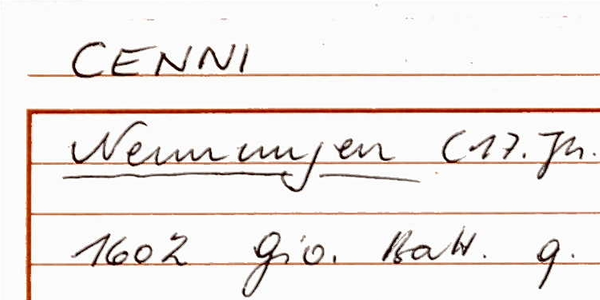 CENNI
Nennungen (17. Jh.
1602 Gio. Batt. q.